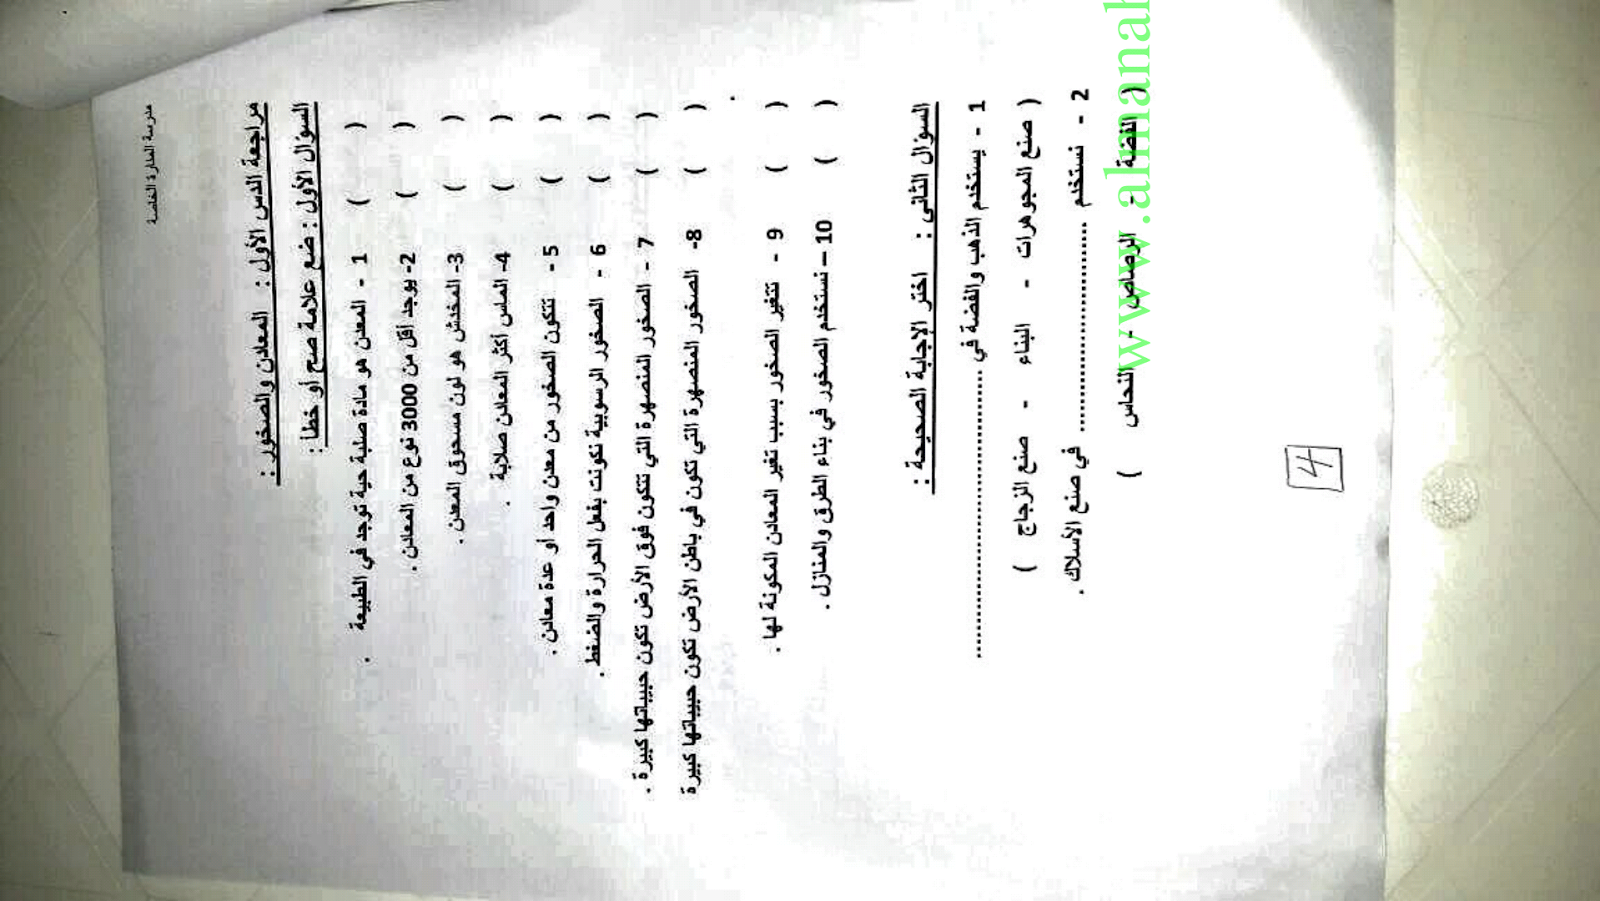 مدرسة المنارة الخاصة
مراجعة الدس الأول : المعادن والصخور :
السؤال الأول : ضع علامة صح أو خطا :
( ) 1 - المعدن هو مادة صلبة حية توجد في الطبيعة .
( ) 2- يوجد أقل من 3000 نوع من المعادن .
( ) 3- المخدش هو لون مسحوق المعدن .
( ) 4- الماس أكثر المعادن صلابة .
( ) 5 - تتكون الصخور من معدن واحد أو عدة معادن .
( ) 6 - الصخور الرسوبية تكونت بفعل الحرارة والضغط .
( ) 7 - الصخور المنصهرة التي تتكون فوق الأرض تكون حبيباتها كبيرة .
( ) 8- الصخور المنصهرة التي تكون في باطن الأرض تكون حبيباتها كبيرة .
( ) 9 - تتغير الصخور بسبب تغير المعادن المكونة لها .
( ) 10 – نستخدم الصخور في بناء الطرق والمنازل .
السؤال الثاني : اختر الإجابة الصحيحة :
1 - يستخدم الذهب والفضة في ............................................
( صنع المجوهرات - البناء - صنع الزجاج )
2 - نستخدم ................................ في صنع الأسلاك .
( الفضة - الرصاص - النحاس )
4
www.almanah